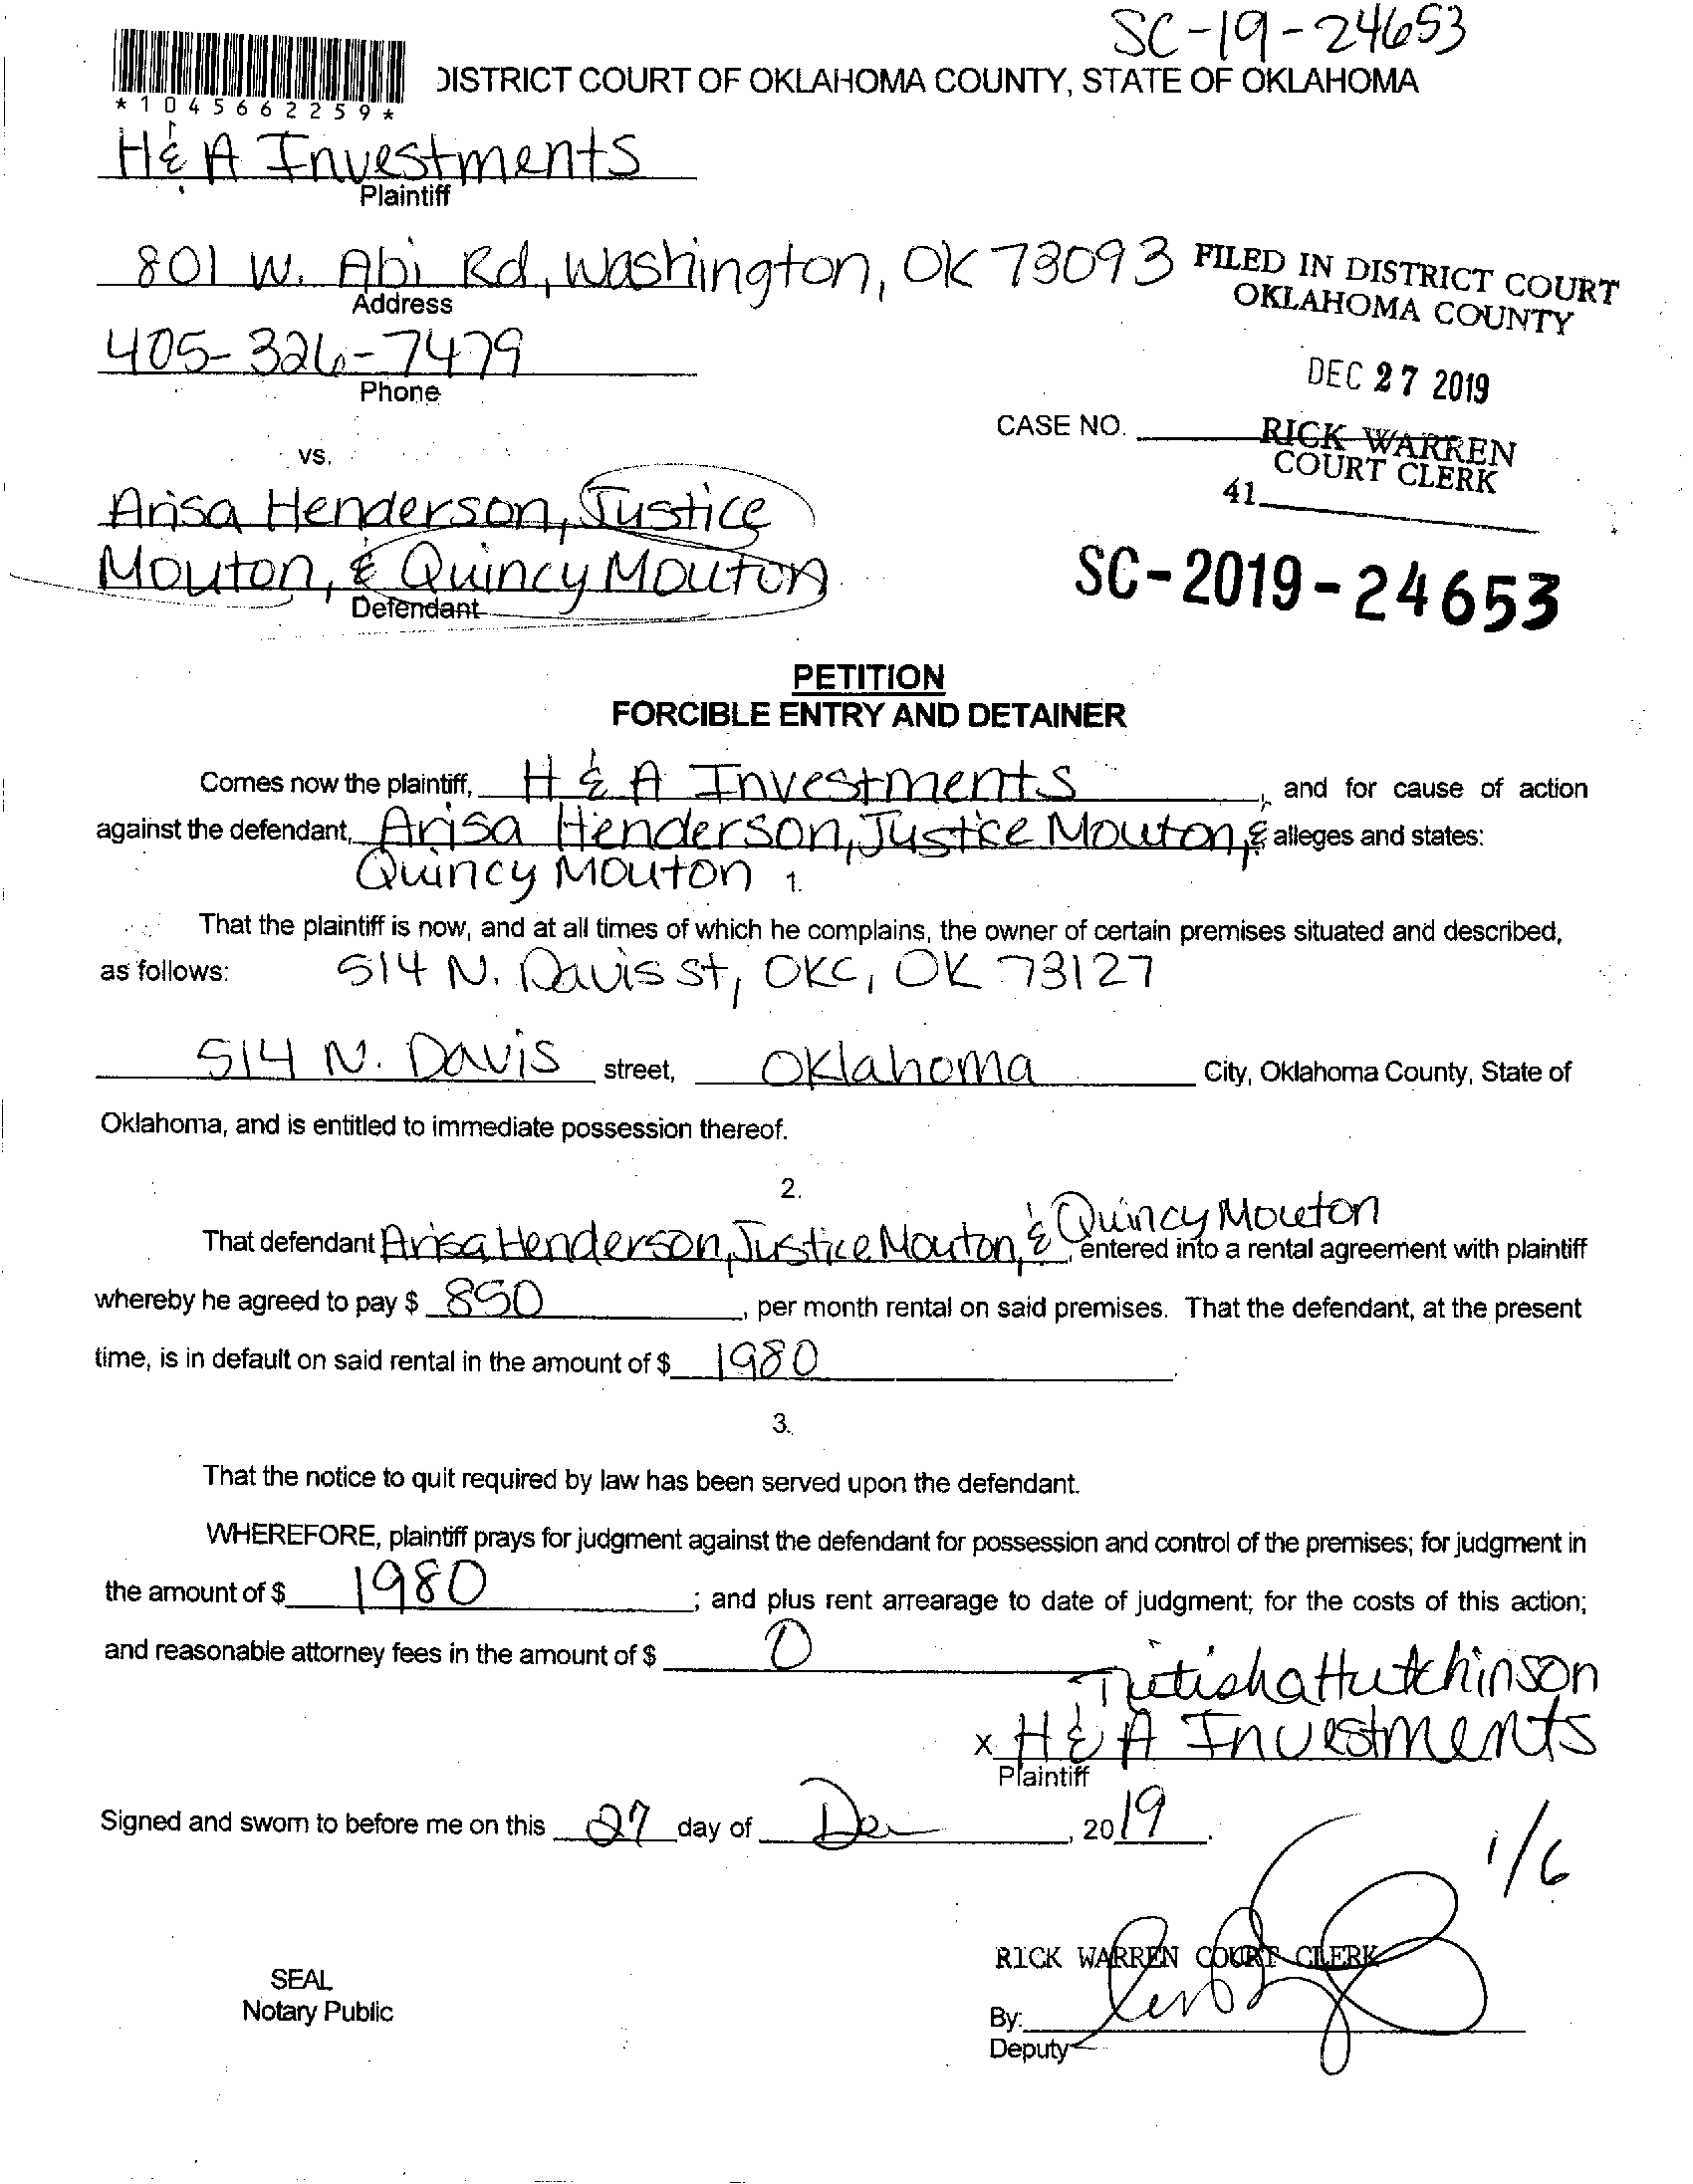 SC-19-24653
DISTRICT COURT OF OKLAHOMA COUNTY, STATE OF OKLAHOMA
*1045662259*
H & A Investments
Plaintiff
801 W. Abi Rd, Washington, OK 73093
Address
FILED IN DISTRICT COURT
OKLAHOMA COUNTY
405-326-7479
Phone
DEC 27 2019
CASE NO.
RICK WARREN
COURT CLERK
41
vs.
Arisa Henderson, Justice
Mouton, & Quincy Mouton
Defendant
SC-2019-24653
PETITION
FORCIBLE ENTRY AND DETAINER
Comes now the plaintiff, H & A Investments, and for cause of action
against the defendant, Arisa Henderson, Justice Mouton, & alleges and states:
Quincy Mouton
1.
That the plaintiff is now, and at all times of which he complains, the owner of certain premises situated and described,
as follows: 514 N. Davis st, OKC, OK 73127
514 N. Davis street, Oklahoma City, Oklahoma County, State of
Oklahoma, and is entitled to immediate possession thereof.
2.
That defendant Arisa Henderson, Justice Mouton, & Quincy Mouton, entered into a rental agreement with plaintiff
whereby he agreed to pay $ 850, per month rental on said premises. That the defendant, at the present
time, is in default on said rental in the amount of $ 1980.
3.
That the notice to quit required by law has been served upon the defendant.
WHEREFORE, plaintiff prays for judgment against the defendant for possession and control of the premises; for judgment in
the amount of $ 1980; and plus rent arrearage to date of judgment; for the costs of this action;
and reasonable attorney fees in the amount of $ 0
Hutchinson
x H & A Investments
Plaintiff
Signed and sworn to before me on this 27 day of Dec, 2019.
1/6
RICK WARREN COURT CLERK
SEAL
Notary Public
By:
Deputy